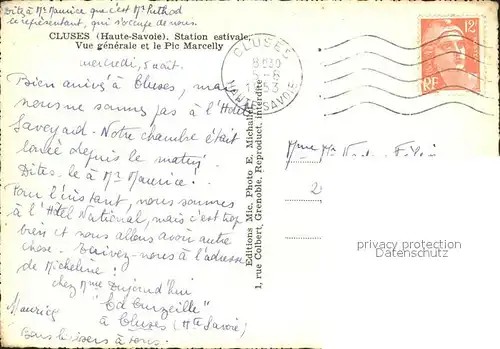 Dites à Mr Maurice que c'est Mr Puthod
le représentant, qui s'occupe de nous.
CLUSES (Haute-Savoie). Station estivale,
Vue générale et le Pic Marcelly
mercredi, 5 août.
Bien arrivés à Cluses, mais
nous ne sommes pas à l'Hôtel
Savoyard - Notre chambre était
louée depuis le matin.
Dites-le à Mr Maurice !
Pour l'instant, nous sommes
à l'Hôtel National, mais c'est trop
bien et nous allons avoir autre
chose. Ecrivez-nous à l'adresse
de Micheline :
chez Mme Dujourd'hui
"Ed Curzeille"
à Cluses (Hte Savoie)
Maurice
Bons baisers à tous.
Editions Mic, Photo E. Michallet
1, rue Colbert, Grenoble, Reproduct. interdite
CLUSES
HAUTE-SAVOIE
12F
RF
Mme
2
privacy protection
Datenschutz